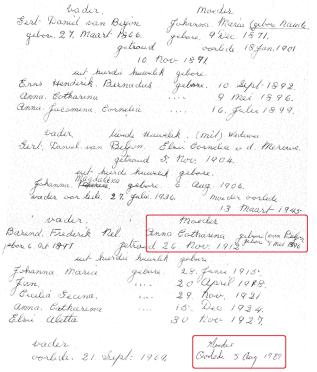 vader, Moeder
Gert Daniel van Biljon Johanna Maria (gebore Naude)
gebore. 27. Maart 1866. gebore. 9 Des 1871.
getroud oorlede 18 Jan. 1901
10 Nov 1891
uit hierdie huwelik gebore.
Hendrik Bernadus gebore. 10 Sept 1892.
Anna. Catharina .... 9 Mei 1896.
Anna. Jacomina. Cornelia .... 16. Julie 1899.
vader, tweede Huwelik. Weduwe
Gert. Daniel van Biljon. Elsie Cornelia v.d. Merwe.
getroud 5 Nov. 1904.
uit hierdie huwelik gebore
Magdalena
Johanna gebore. 6 Aug 1906.
vader oorlede 27. Julie. 1936. moeder oorlede
13 Maart 1945.
vader. Moeder
Barend. Frederik Nel. Anna Catharina gebore (van Biljon
gebore 6 Oct getroud 26 Nov 1912 gebore 9 Mei 1896
uit hierdie huwelik gebore
Johanna Maria gebore. 28. Junie 1915.
.... 20 April 1918.
Cecilia .... 29. Nov. 1921
Anna. Catharina .... 15. Des 1924.
Elsie Aletta .... 30 Nov 1927.
vader Moeder
oorlede. 21. Sept: 1969. Oorlede 5 Aug 1989